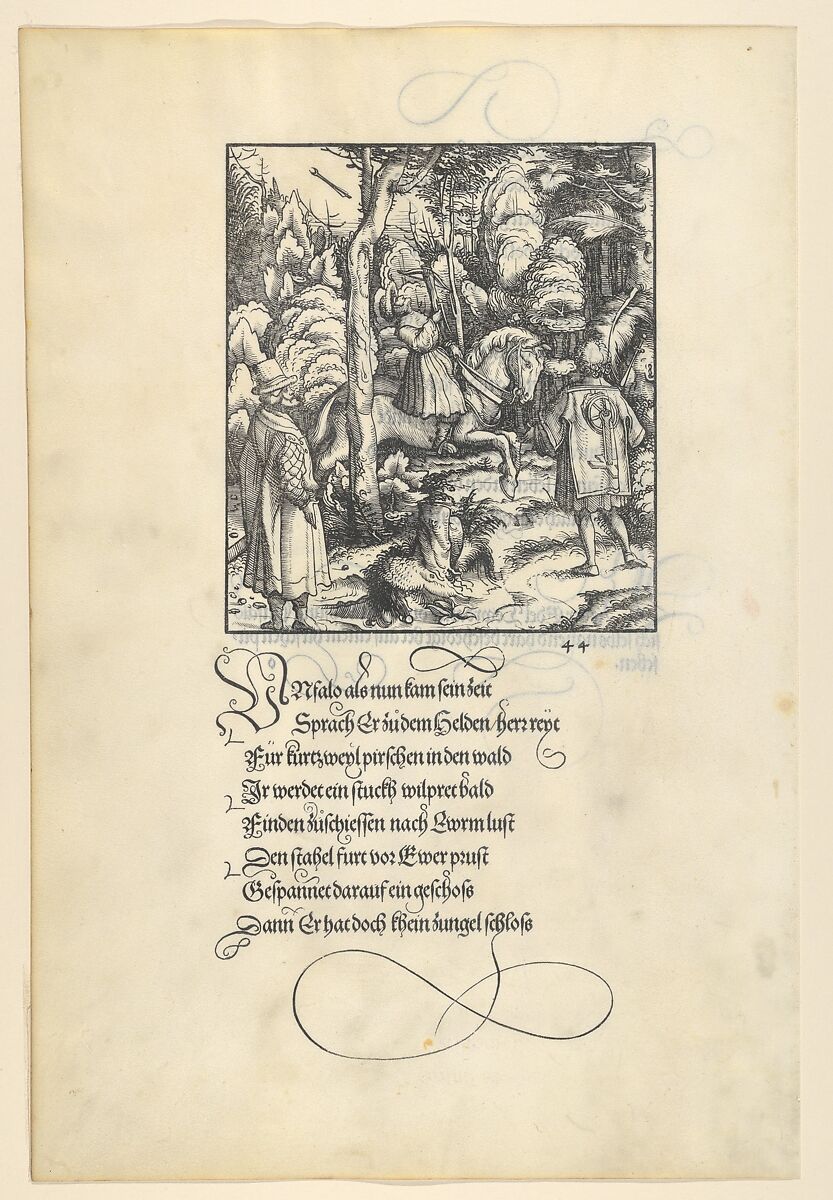 44
UNfalo als nun kam sein zeit
Sprach Er zů dem Helden/herr reyt
Für kurtzweyl pirschen in den wald
Ir werdet ein stuckh wilpret bald
Finden zůschiessen nach Ewrm lust
Den stahel furt vor Ewer prust
Gespannet darauf ein geschoss
Dann Er hat doch khein zungel schloss